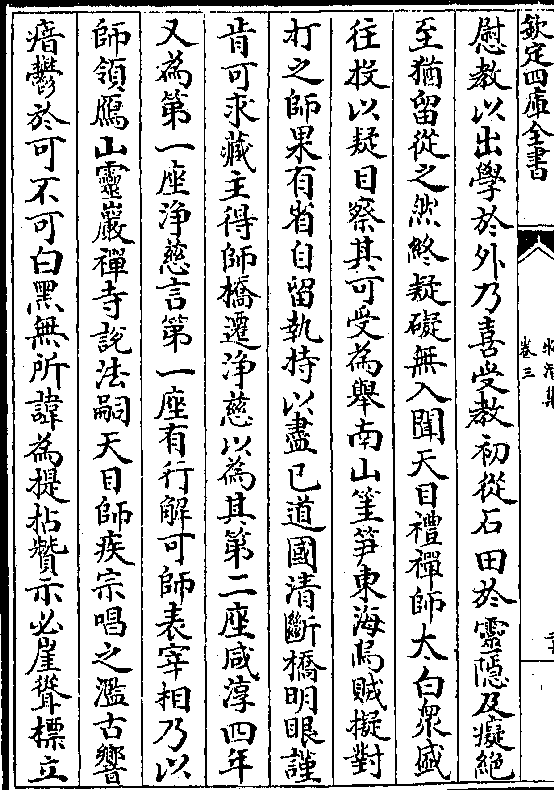 欽定四庫全書
卷三
慰教以出學於外乃喜受教初從石田於靈隱及癡絕
至猶留從之然終疑礙無入聞天目禮禪師太白衆盛
往投以疑目察其可受為舉南山筀笋東海烏賊擬對
打之師果有省自留執持以盡已道國清斷橋明眼謹
肯可求藏主得師橋遷淨慈以為其第二座咸淳四年
又為第一座淨慈言第一座有行解可師表宰相乃以
師領鴈山靈巖禪寺說法嗣天目師疾宗唱之濫古響
瘖鬱於可不可白黑無所諱為提拈贊示必崖聳標立